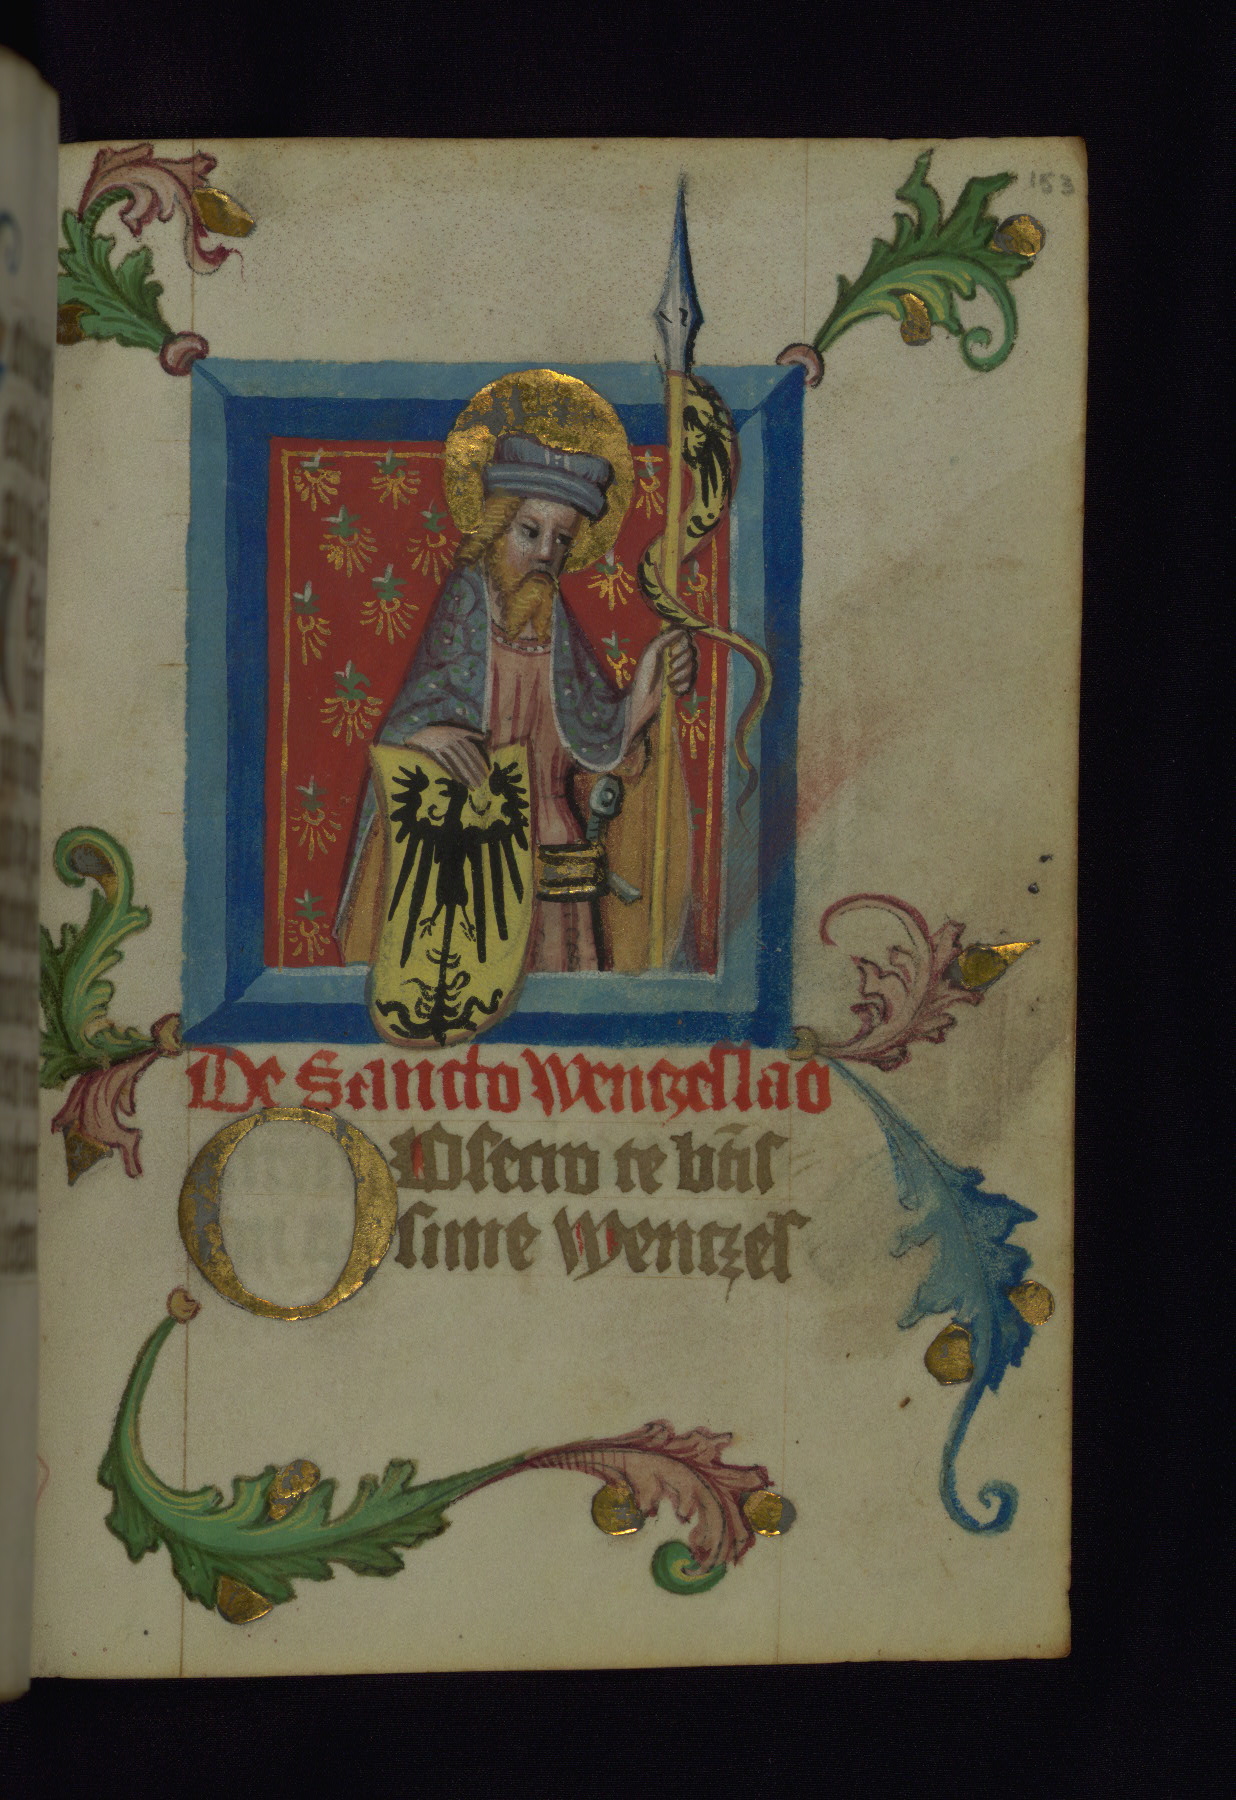 153
De Sancto Wenczeslao
OBsecro te btīs
sime Wenczes